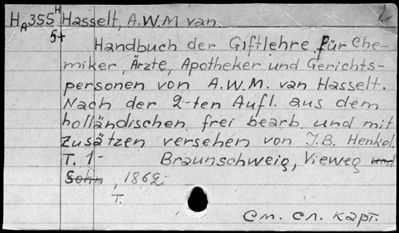 HA355H Hasselt, A.W.M van. 2
5t
Handbuch der Giftlehre für Che-
miker, Ärzte, Apotheker und Gerichts-
personen von A.W.M. van Hasselt.
Nach der 2-ten Aufl. aus dem
holländischen frei bearb. und mit
Zusätzen versehen von J.B. Henkel.
T. 1- Braunschweig, Vieweg und
Sohn, 1862-
T.
См. сл. карт.